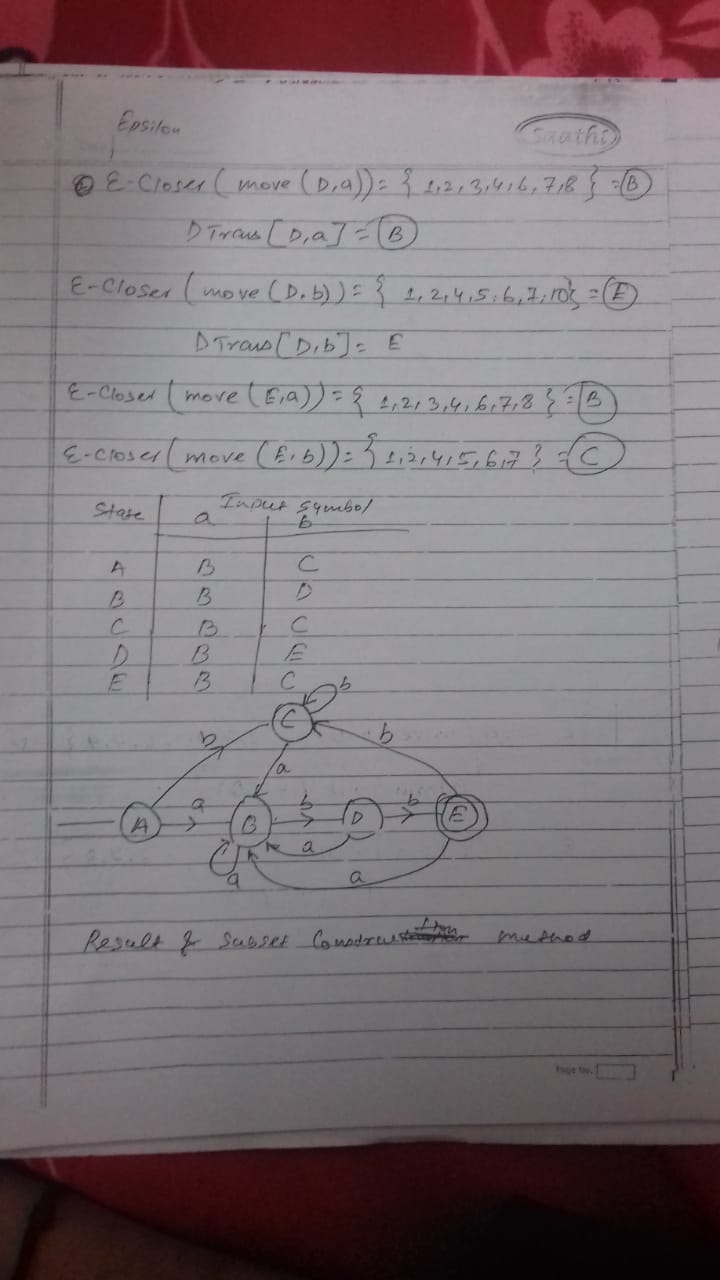 Epsilon
Saathi
ε-Closer ( move (D,a)) = { 1,2,3,4,6,7,8 } = B
DTrans [D,a] = B
ε-Closer ( move (D,b)) = { 1,2,4,5,6,7,10} = E
DTrans [D,b] = E
ε-Closer ( move (E,a)) = { 1,2,3,4,6,7,8 } = B
ε-Closer ( move (E,b)) = { 1,2,4,5,6,7 } = C
State Input Symbol
a b
A B C
B B D
C B C
D B E
E B C
b
C
b b
a
a b b
A B D E
a
a a
Result of Subset Construction method
Page No.